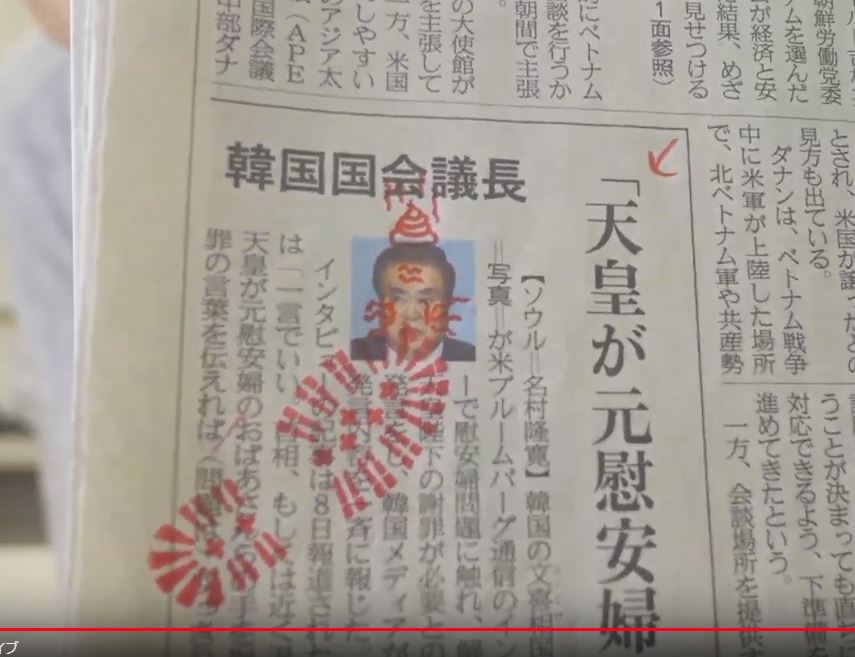 朝鮮労働党委
ナムを選んだ
ムが経済と安
結果、めざ
見せつける
1面参照）
的にベトナム
談を行うか
朝間で主張
。
の大使館が
を主張して
一方、米国
しやすい
のアジア太
（APE
国際会議
中部ダナ
とされ、米国が譲ったとの
見方も出ている。
ダナンは、ベトナム戦争
中に米軍が上陸した場所
で、北ベトナム軍や共産勢
うことが決まっても直ちに
対応できるよう、下準備を
進めてきたという。
一方、会談場所を提供す
「天皇が元慰安婦
韓国国会議長
【ソウル＝名村隆寛】韓国の文喜相国
＝写真＝が米ブルームバーグ通信のイン
ーで慰安婦問題に触れ、解
天皇陛下の謝罪が必要との
発言をし、韓国メディアが
発言内容を一斉に報じた。
インタビューの記事は8日報道された
は「一言でいい。首相、もしくは近く退
天皇が元慰安婦のおばあさんらの手を
罪の言葉を伝えれば、（問題は）
イブ